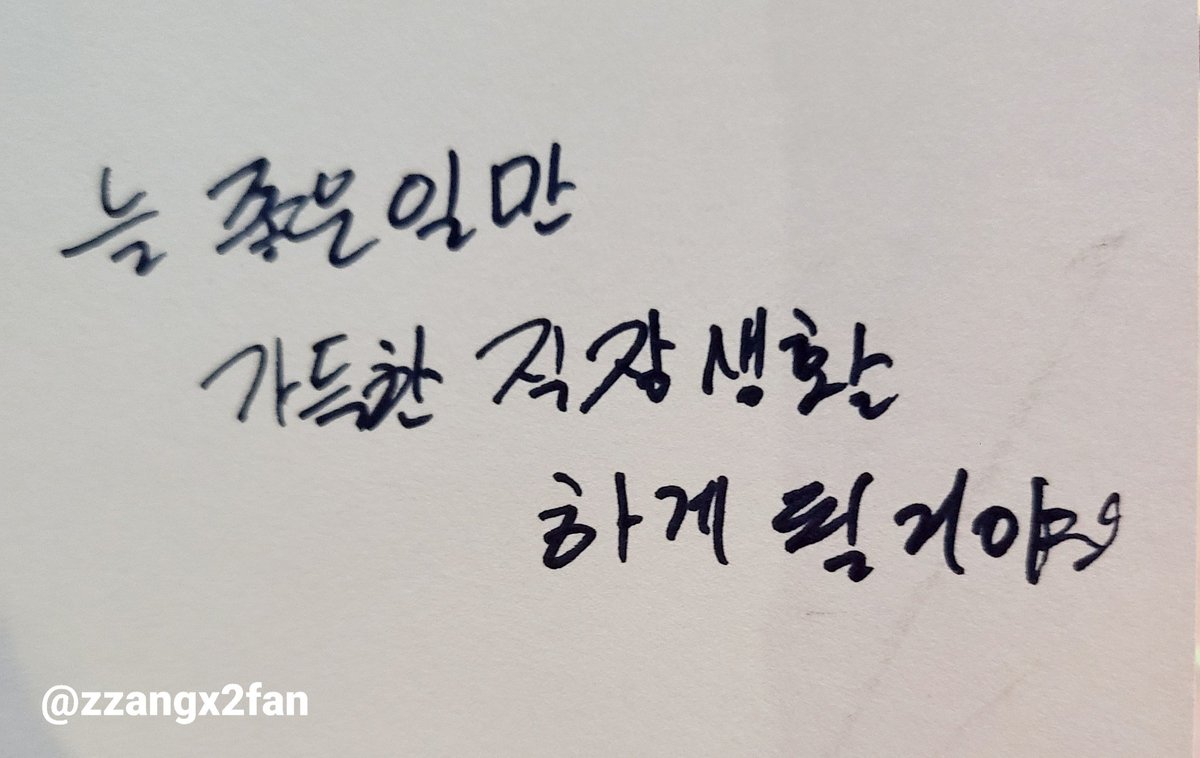 늘 좋은 일만
가득한 직장생활
하게 될 거야
@zzangx2fan